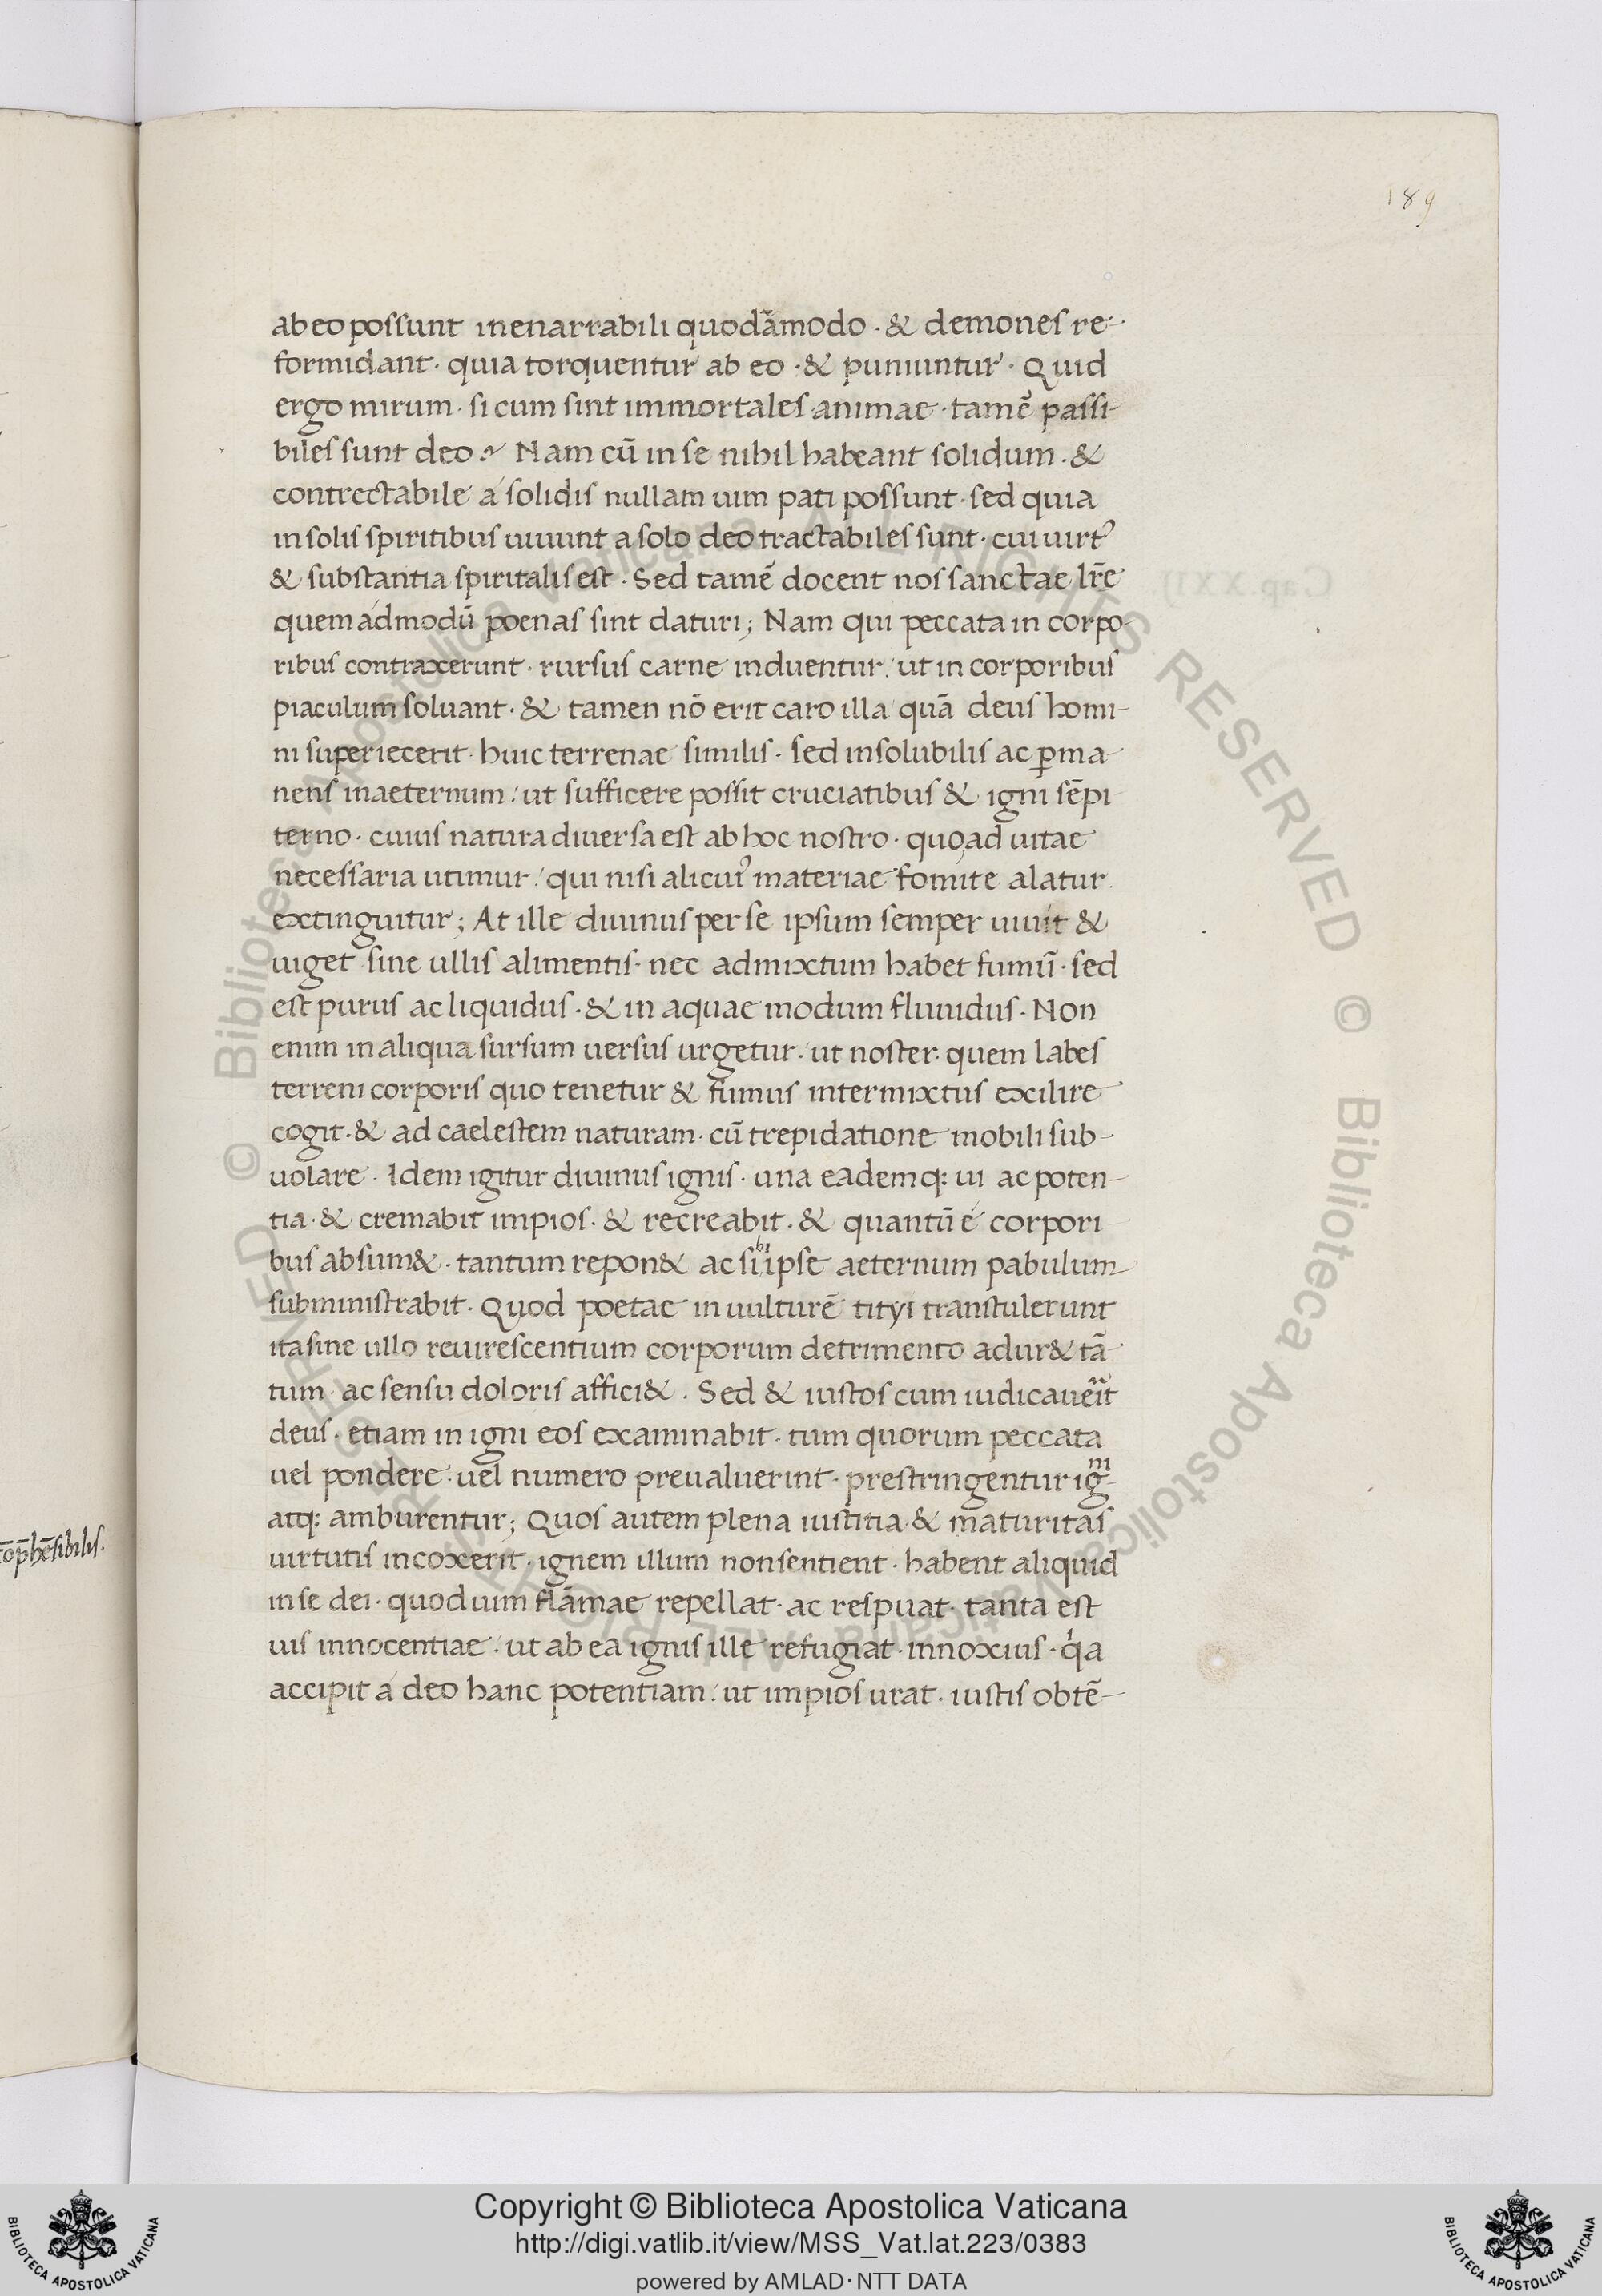 189
ab eo possunt inenarrabili quodāmodo · & demones re-
formidant · quia torquentur ab eo · & puniuntur · Quid
ergo mirum · si cum sint immortales animae · tamē passi-
biles sunt deo ? Nam cū in se nihil habeant solidum · &
contrectabile a solidis nullam uim pati possunt · sed quia
in solis spiritibus uiuunt a solo deo tractabiles sunt · cui uirtꝰ
& substantia spiritalis est · Sed tamē docent nos sanctae lr̄e
quem admodū poenas sint daturi; Nam qui peccata in corpo-
ribus contraxerunt · rursus carne induentur: ut in corporibus
piaculum soluant · & tamen nō erit caro illa quā deus homi-
ni superiecerit · huic terrenae similis · sed insolubilis ac ꝑma-
nens inaeternum: ut sufficere possit cruciatibus & igni sēpi-
terno · cuius natura diuersa est ab hoc nostro · quo ad uitae
necessaria utimur: qui nisi alicuiꝰ materiae fomite alatur
extinguitur; At ille diuinus per se ipsum semper uiuit &
uiget sine ullis alimentis · nec admixtum habet fumū · sed
est purus ac liquidus · & in aquae modum fluuidus · Non
enim in aliqua sursum uersus urgetur: ut noster: quem labes
terreni corporis quo tenetur & fumus intermixtus exilire
cogit · & ad caelestem naturam · cū trepidatione mobili sub-
uolare · Idem igitur diuinus ignis · una eademq: ui ac poten-
tia · & cremabit impios · & recreabit · & quantū e corpori-
bus absum& · tantum repon& ac sibi ipse aeternum pabulum
subministrabit · Quod poetae in uulturē tityi transtulerunt
ita sine ullo reuirescentium corporum detrimento adur& tā-
tum · ac sensu doloris affici& · Sed & iustos cum iudicauerit
deus · etiam in igni eos examinabit · tum quorum peccata
uel pondere · uel numero preualuerint · prestringentur igni
atq: amburentur; Quos autem plena iustitia & maturitas
uirtutis incoxerit · ignem illum non sentient · habent aliquid
in se dei · quod uim flāmae repellat · ac respuat · tanta est
uis innocentiae: ut ab ea ignis ille refugiat · innoxius · qͥa
accipit a deo hanc potentiam: ut impios urat · iustis obtē-
Copyright © Biblioteca Apostolica Vaticana
http://digi.vatlib.it/view/MSS_Vat.lat.223/0383
powered by AMLAD·NTT DATA